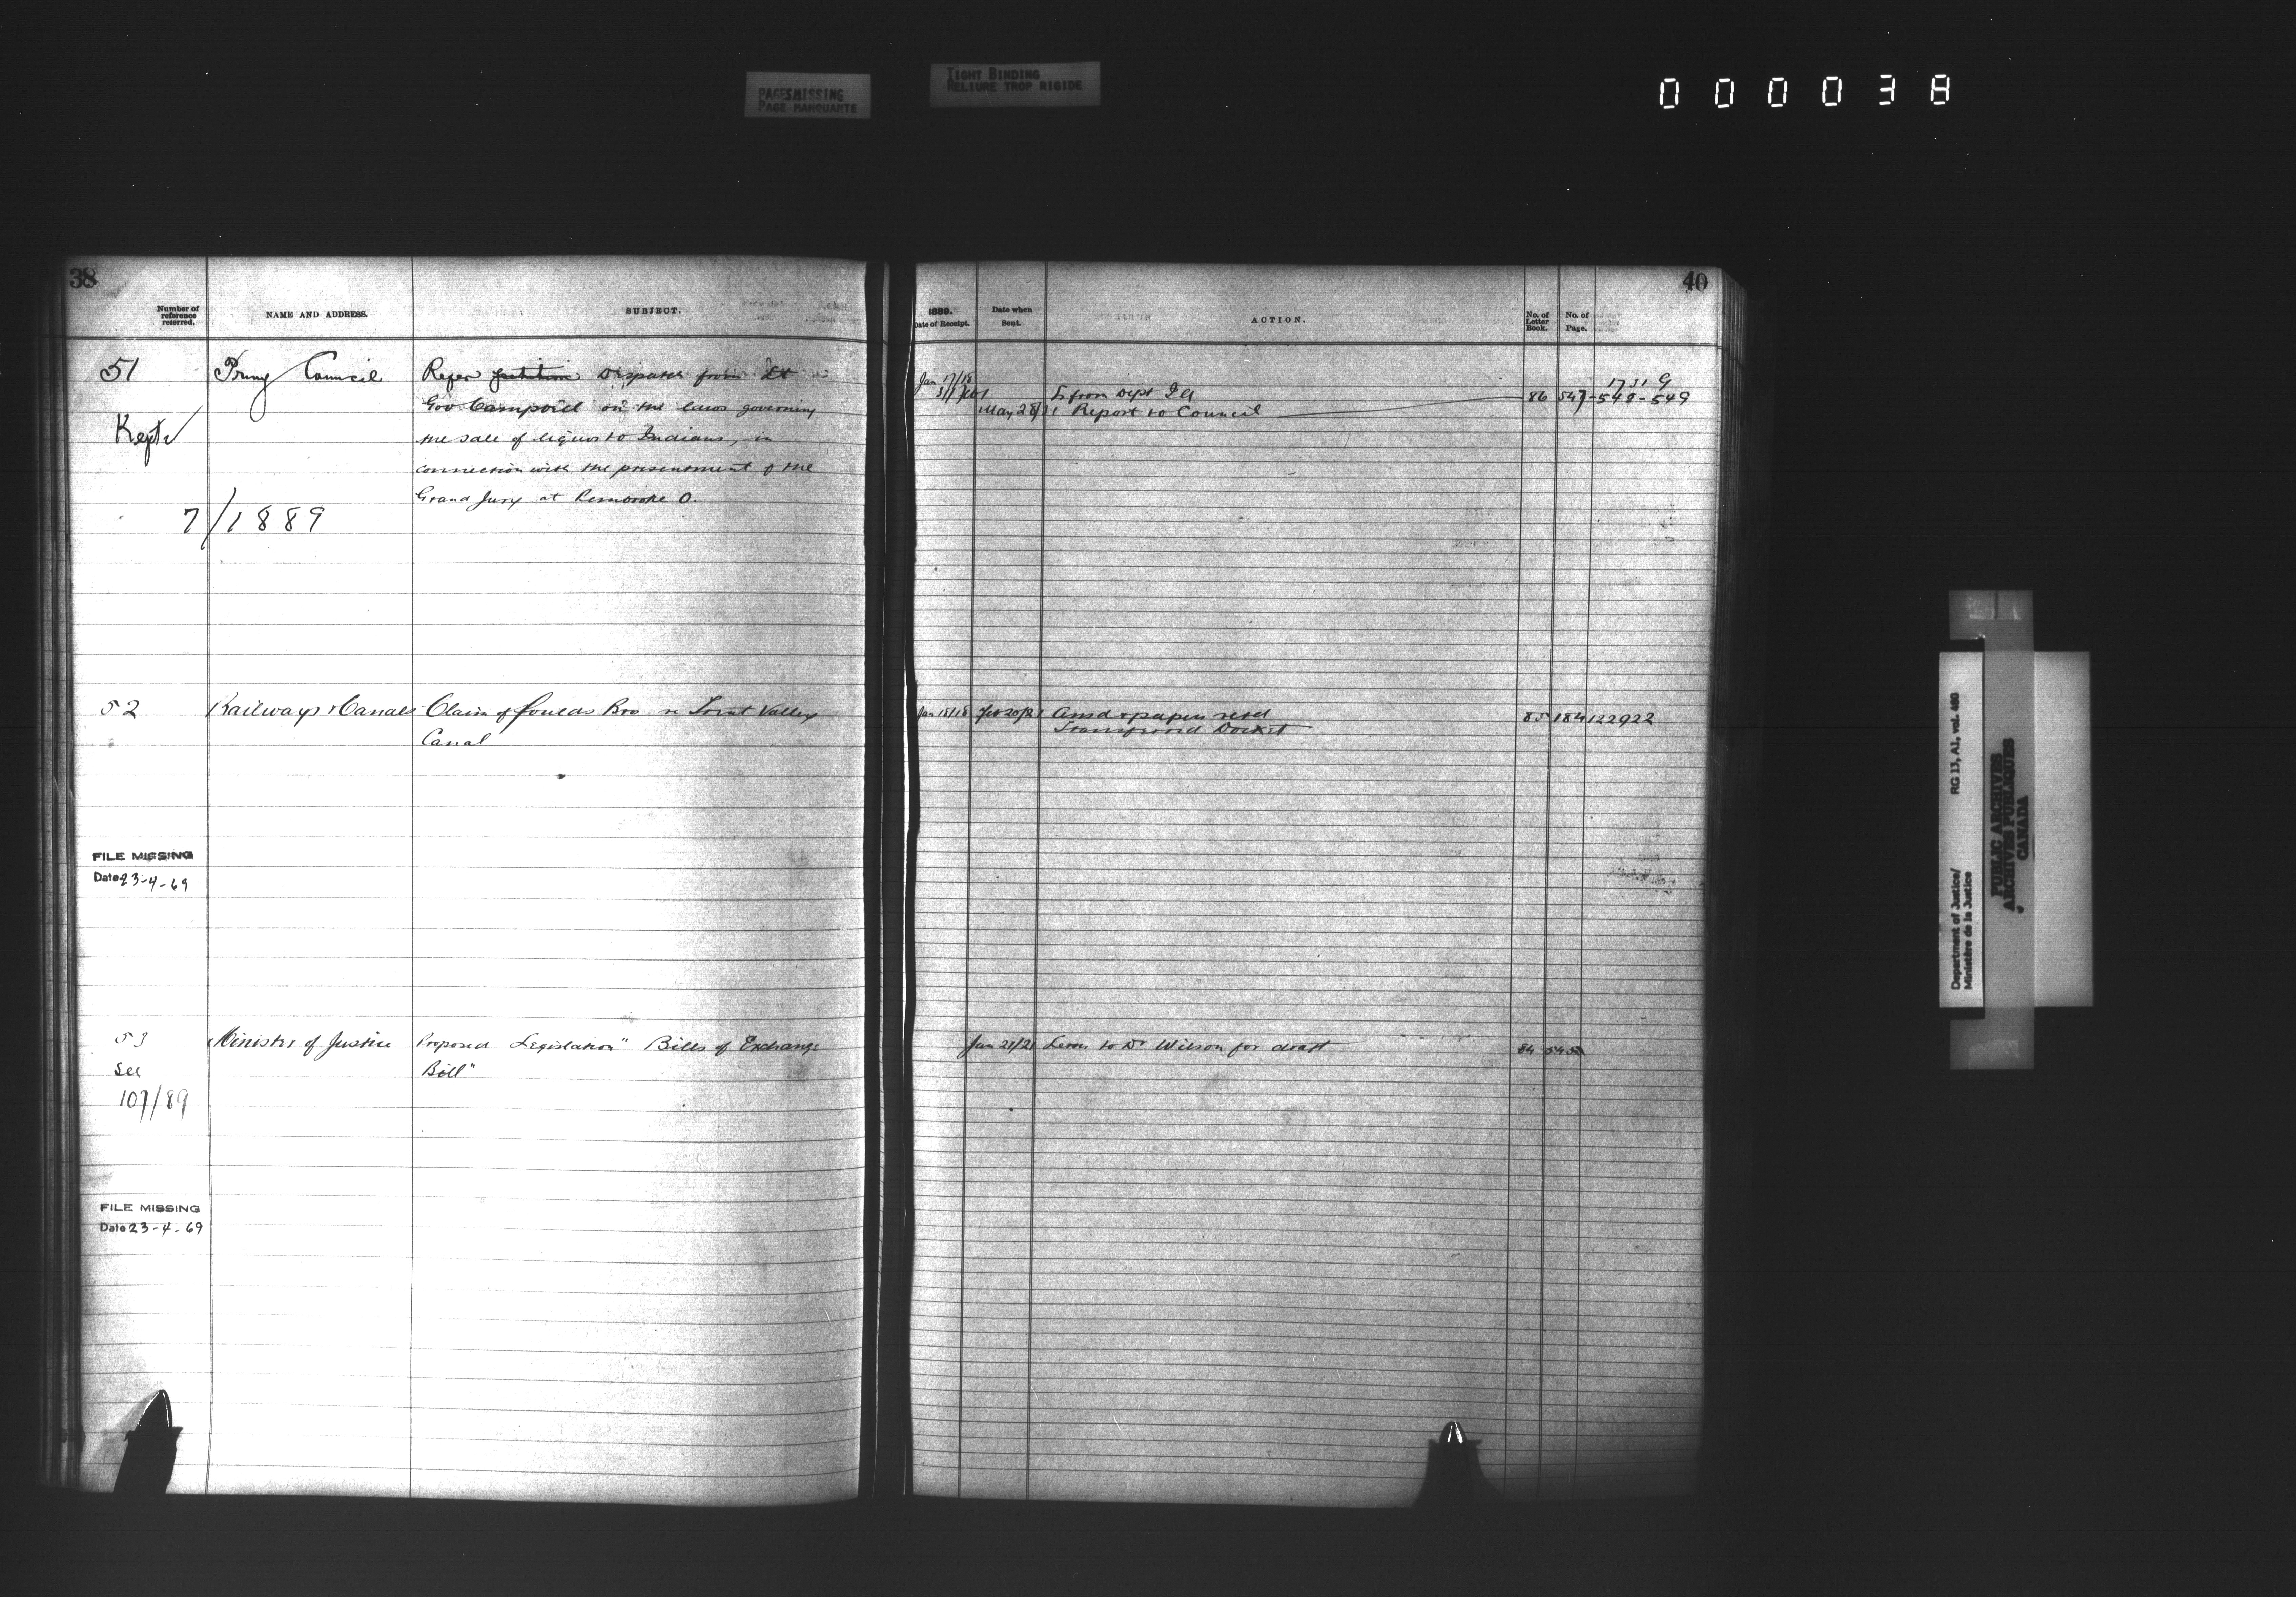 PAGES MISSING
PAGE MANQUANTE
TIGHT BINDING
RELIURE TROP RIGIDE
000038
38
Number of reference referred.
NAME AND ADDRESS.
SUBJECT.
51
Privy Council
Refer petition Dispatch from Lt
Gov Campbell on the laws governing
Kept
the sale of liquor to Indians, in
connection with the presentment of the
Grand Jury at Pembroke O.
7/1889
52
Railways & Canals
Claim of Foulds Bro re Trent Valley
Canal
FILE MISSING
Date 23-4-69
53
Minister of Justice
Proposed Legislation "Bills of Exchange
See
Bill"
107/89
FILE MISSING
Date 23-4-69
40
1889.
Date of Receipt.
Date when Sent.
ACTION.
No. of Letter Book.
No. of Page.
Jan 17/18
L from Dept IA
1731 G
May 28/31 Report to Council
86 547-548-549
Jan 18/18 Feb 20/21 Ansd & papers retd
85 184 122922
Transferred Docket
Jan 21/21 Letter to Dr Wilson for draft
84 545
Department of Justice/
Ministère de la Justice
RG 13, A1, vol. 480
PUBLIC ARCHIVES
ARCHIVES PUBLIQUES
CANADA